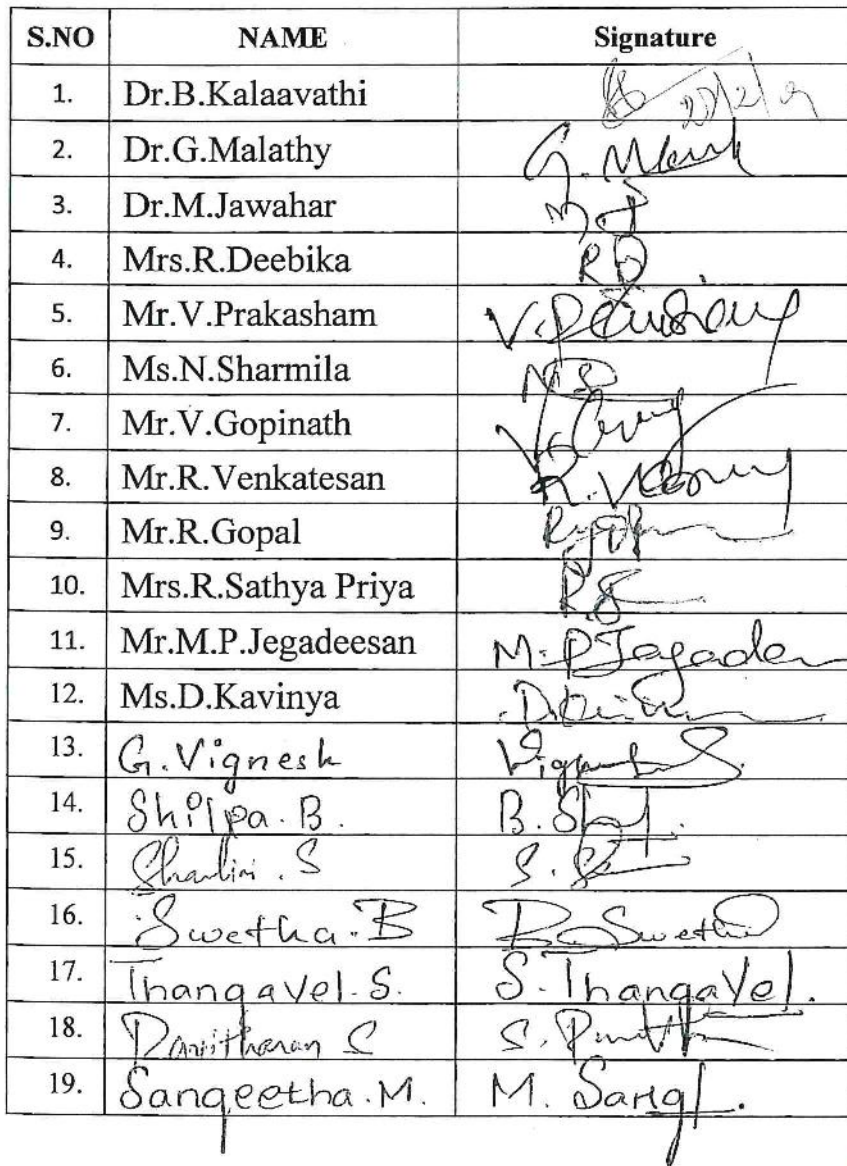 S.NO NAME Signature
1. Dr.B.Kalaavathi
2. Dr.G.Malathy G.
3. Dr.M.Jawahar M J
4. Mrs.R.Deebika R D
5. Mr.V.Prakasham V.
6. Ms.N.Sharmila N S
7. Mr.V.Gopinath V.
8. Mr.R.Venkatesan R.
9. Mr.R.Gopal
10. Mrs.R.Sathya Priya R.S
11. Mr.M.P.Jegadeesan M.P Jegade
12. Ms.D.Kavinya D.
13. G.Vignesh
14. Shilpa.B. B.
15. Shalini.S S.S
16. Swetha.B B. Swetha
17. Thangavel.S. S.Thangavel.
18. S S.
19. Sangeetha.M. M. Sang